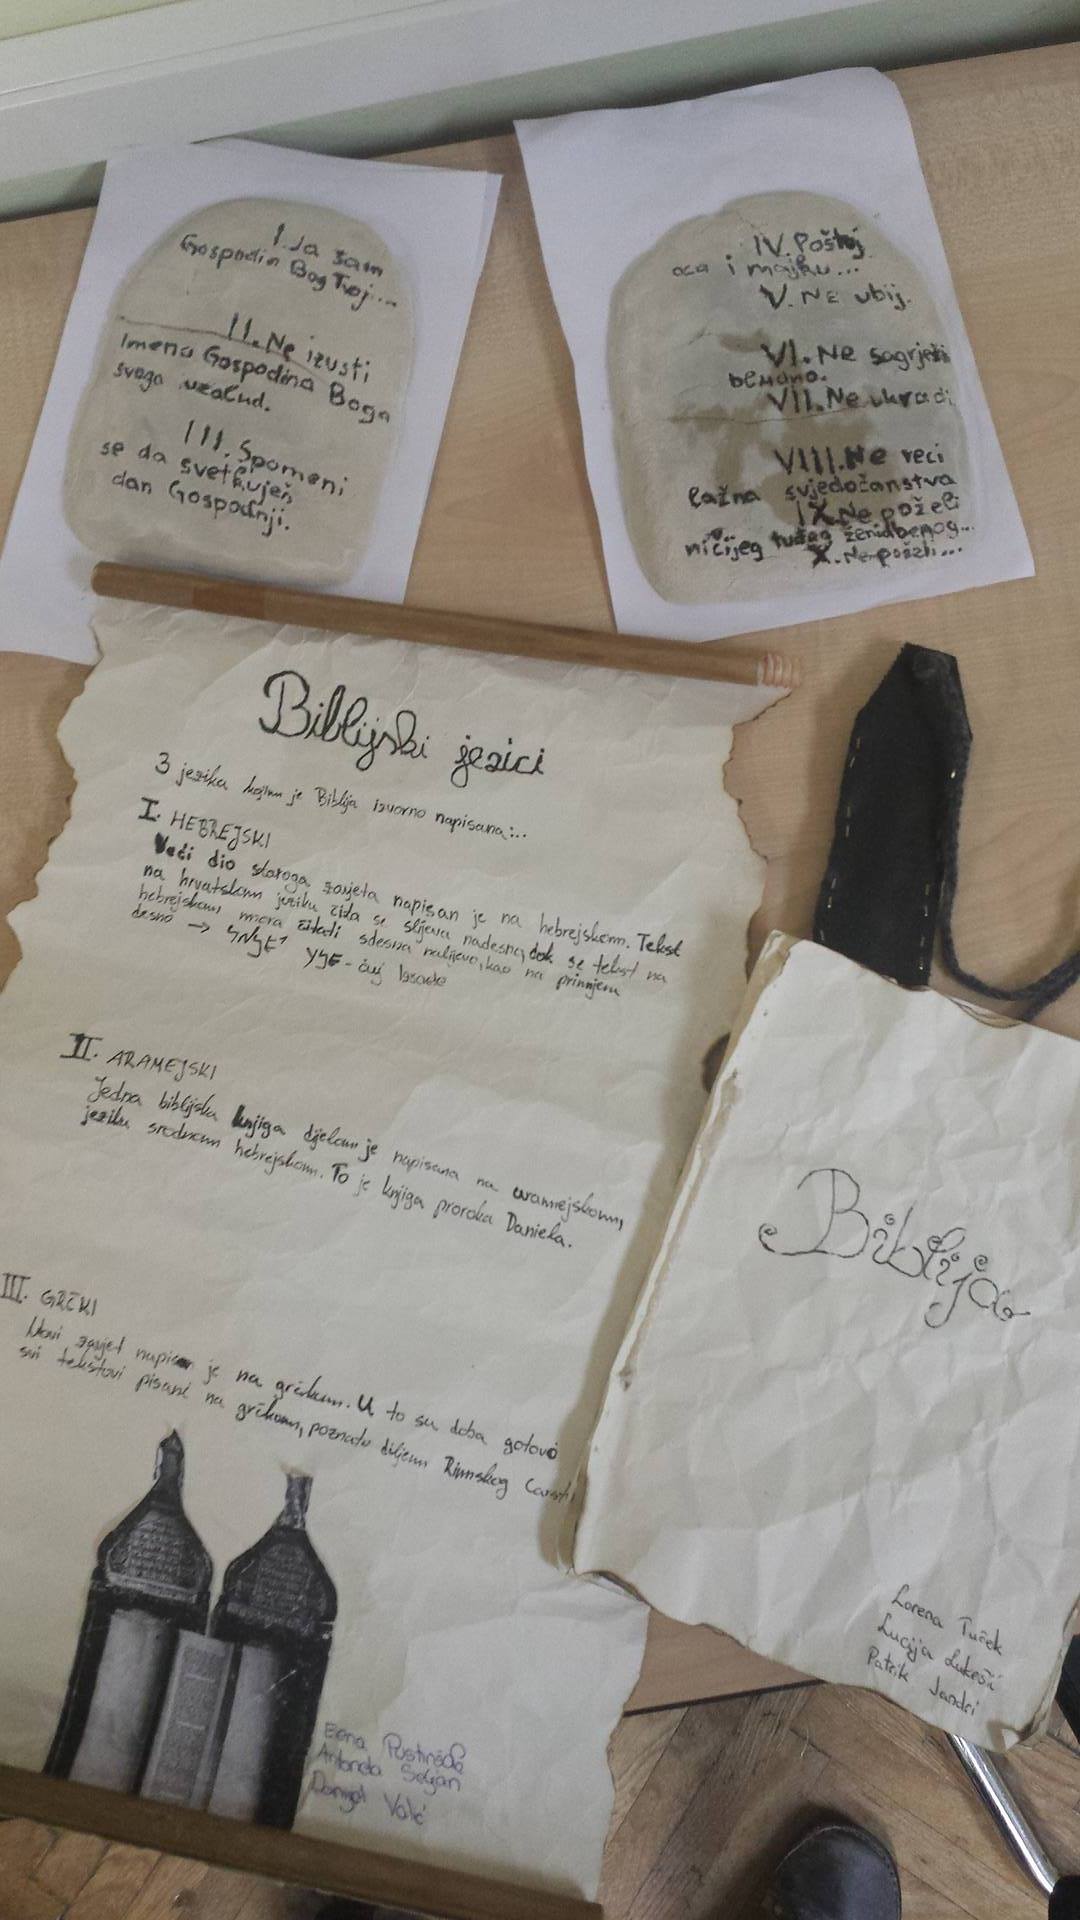 I. Ja sam
Gospodin Bog Tvoj...
II. Ne izusti
Imena Gospodina Boga
svoga uzalud.
III. Spomeni
se da svetkuješ
dan Gospodnji.
IV. Poštuj
oca i majku...
V. NE ubij.
VI. Ne sagriješi
bludno.
VII. Ne ukradi
VIII. Ne reci
lažna svjedočanstva
IX. Ne poželi
ničijeg tuđeg ženidbenog...
X. Ne poželi...
Biblijski jezici
3 jezika kojim je Biblija izvorno napisana:..
I. HEBREJSKI
Veći dio staroga zavjeta napisan je na hebrejskom. Tekst
na hrvatskom jeziku čita se slijeva nadesno, dok se tekst na
hebrejskom mora čitati sdesna nalijevo, kao na primjeru
desno →
II. ARAMEJSKI
Jedna biblijska knjiga dijelom je napisana na aramejskom,
jeziku srodnom hebrejskom. To je knjiga proroka Daniela.
III. GRČKI
Novi zavjet napisan je na grčkom. U to su doba gotovo
svi tekstovi pisani na grčkom, poznato diljem Rimskog
Biblija
Lorena Tuček
Lucija Lukešić
Patrik Jandri
Elena
Antonela Seljan
Danijel Valić